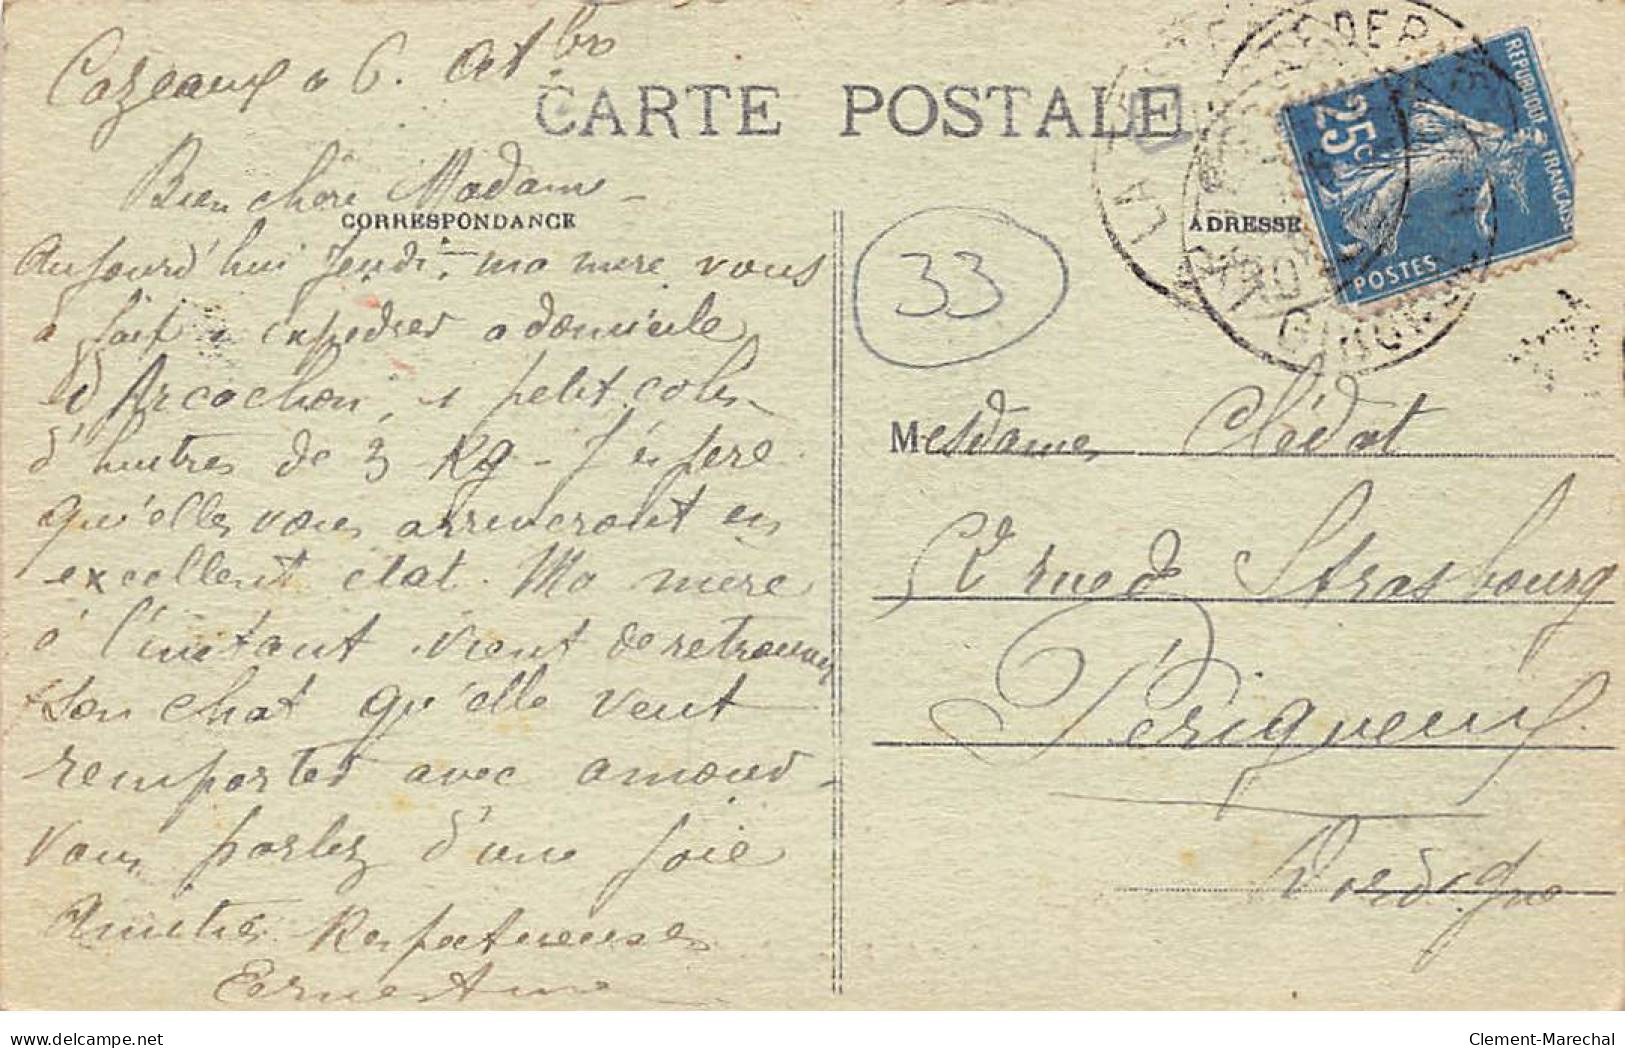 Cazeaux
CARTE POSTALE
Bien chère Madame
CORRESPONDANCE
Aujourd'hui Jeudi, ma mere vous
a fait expedier a domicile
d'Arcachon, 1 petit colis
d'huitres de 3 Kg - J'espere
qu'elles vous arriveront en
excellent etat. Ma mere
à l'instant vient de retrouver
son chat qu'elle veut
remporter avec amour -
vous parlez d'une joie
Amitiés Respectueuses
Ernestine
33
ADRESSE
REPUBLIQUE FRANÇAISE
25c
POSTES
GIRONDE
Mesdames Clédat
rue de Strasbourg
Périgueux
Dordogne
delcampe.net
Clement-Marechal